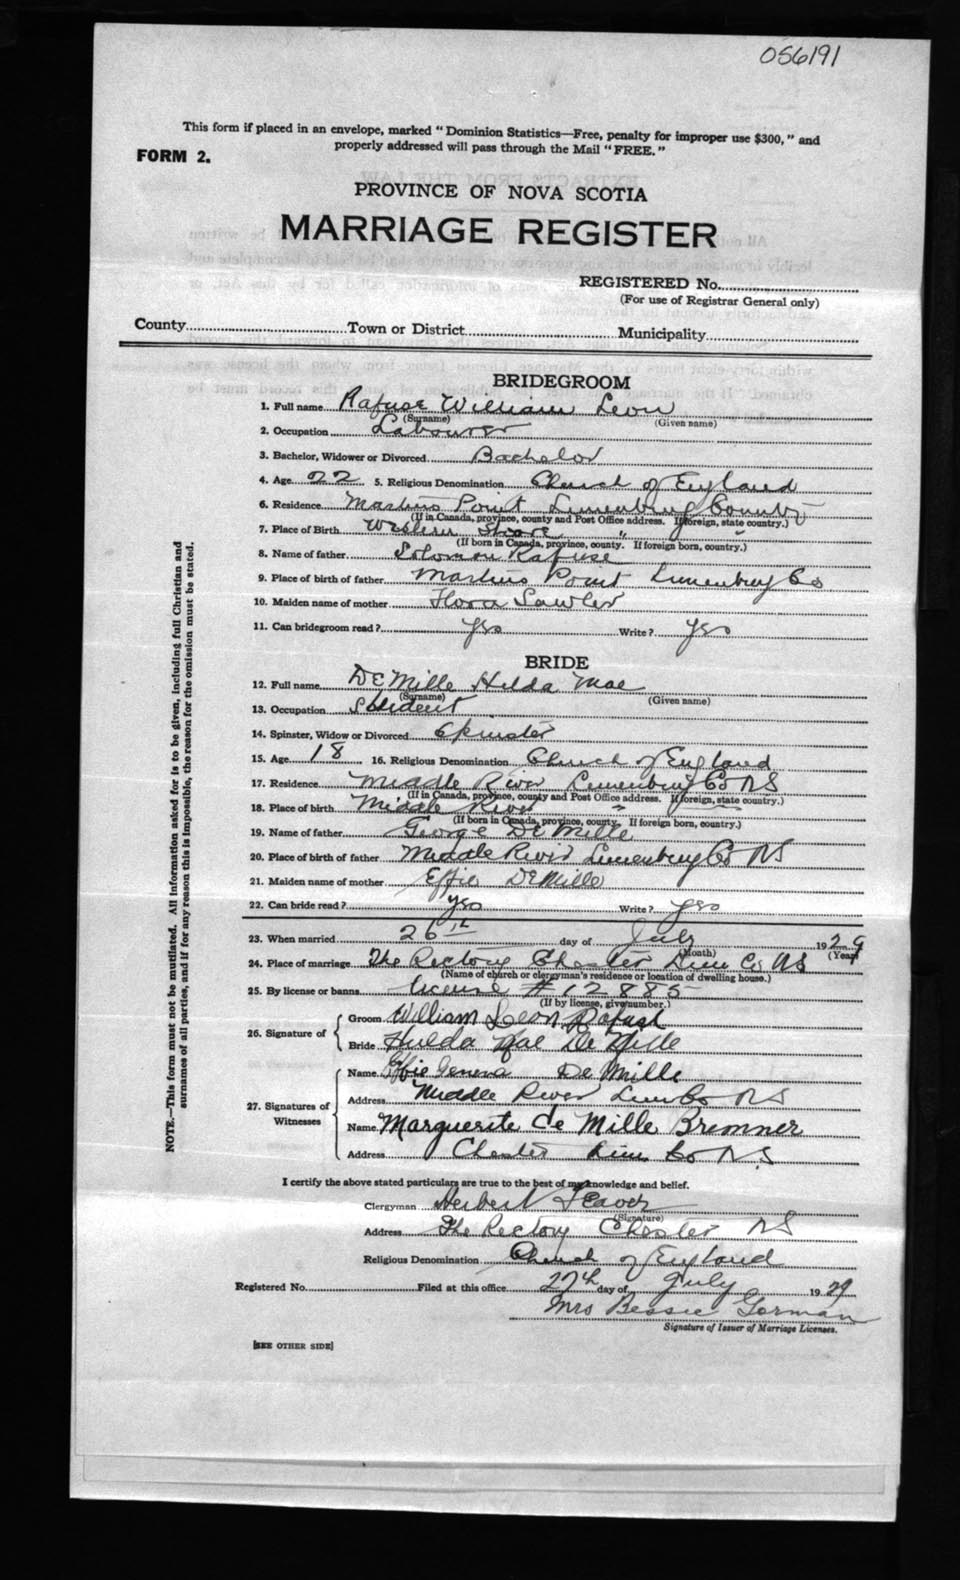 056191
This form if placed in an envelope, marked "Dominion Statistics—Free, penalty for improper use $300," and
properly addressed will pass through the Mail "FREE."
FORM 2.
PROVINCE OF NOVA SCOTIA
MARRIAGE REGISTER
REGISTERED No.
(For use of Registrar General only)
County Town or District Municipality
BRIDEGROOM
1. Full name Rafuse William Leon
(Surname) (Given name)
2. Occupation Labourer
3. Bachelor, Widower or Divorced Bachelor
4. Age 22 5. Religious Denomination Church of England
6. Residence Martins Point Lunenburg County
(If in Canada, province, county and Post Office address. If foreign, state country.)
7. Place of Birth Western Shore " "
(If born in Canada, province, county. If foreign born, country.)
8. Name of father Solomon Rafuse
9. Place of birth of father Martins Point Lunenburg Co
10. Maiden name of mother Flora Lawler
11. Can bridegroom read? yes Write? yes
BRIDE
12. Full name DeMille Hilda Mae
(Surname) (Given name)
13. Occupation Student
14. Spinster, Widow or Divorced Spinster
15. Age 18 16. Religious Denomination Church of England
17. Residence Middle River Lunenburg Co NS
(If in Canada, province, county and Post Office address. If foreign, state country.)
18. Place of birth Middle River
(If born in Canada, province, county. If foreign born, country.)
19. Name of father George DeMille
20. Place of birth of father Middle River Lunenburg Co NS
21. Maiden name of mother Effie DeMille
22. Can bride read? yes Write? yes
23. When married 26th day of July 1929
(Month) (Year)
24. Place of marriage The Rectory Chester Lun Co NS
(Name of church or clergyman's residence or location of dwelling house.)
25. By license or banns license # 12885
(If by license, give number.)
26. Signature of
Groom William Leon Rafuse
Bride Hilda Mae De Mille
27. Signatures of Witnesses
Name Effie Geneva De Mille
Address Middle River Lun Co NS
Name Marguerite De Mille Bremner
Address Chester Lun Co N.S
I certify the above stated particulars are true to the best of my knowledge and belief.
Clergyman Herbert
(Signature)
Address The Rectory Chester NS
Religious Denomination Church of England
Registered No. Filed at this office 27th day of July 1929
Mrs Bessie Gorman
Signature of Issuer of Marriage Licenses.
[SEE OTHER SIDE]
NOTE.—This form must not be mutilated. All information asked for is to be given, including full Christian and
surnames of all parties, and if for any reason this is impossible, the reason for the omission must be stated.